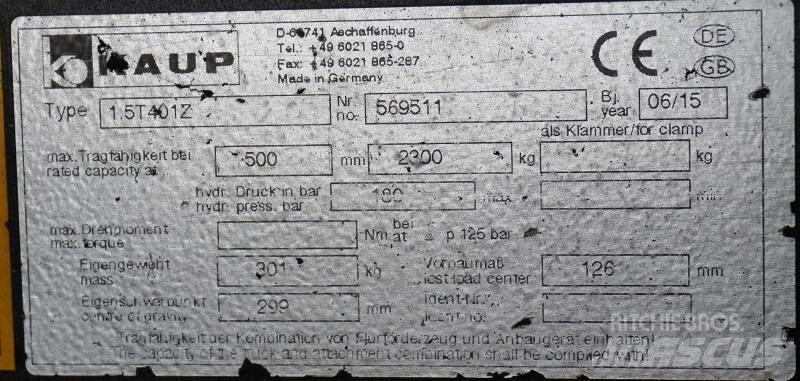 KAUP
D-63741 Aschaffenburg
Tel.: +49 6021 865-0
Fax: +49 6021 865-287
Made in Germany
CE
DE
GB
Type 1.5T401Z Nr. no. 569511 Bj. year 06/15
als Klammer/for clamp
max. Tragfähigkeit bei
rated capacity at 500 mm 2300 kg kg
hydr. Druck in bar
hydr. press. bar 180 max. min.
max. Drehmoment
max. torque Nm bei at △ p 125 bar
Eigengewicht
mass 301 kg
Vorbaumaß
lost load center 126 mm
Eigenschwerpunkt
centre of gravity 299 mm
Ident-Nr.
Ident no.
Tragfähigkeit der Kombination von Flurförderzeug und Anbaugerät einhalten!
The capacity of the truck and attachment combination shall be complied with!
RITCHIE BROS.
MASCUS